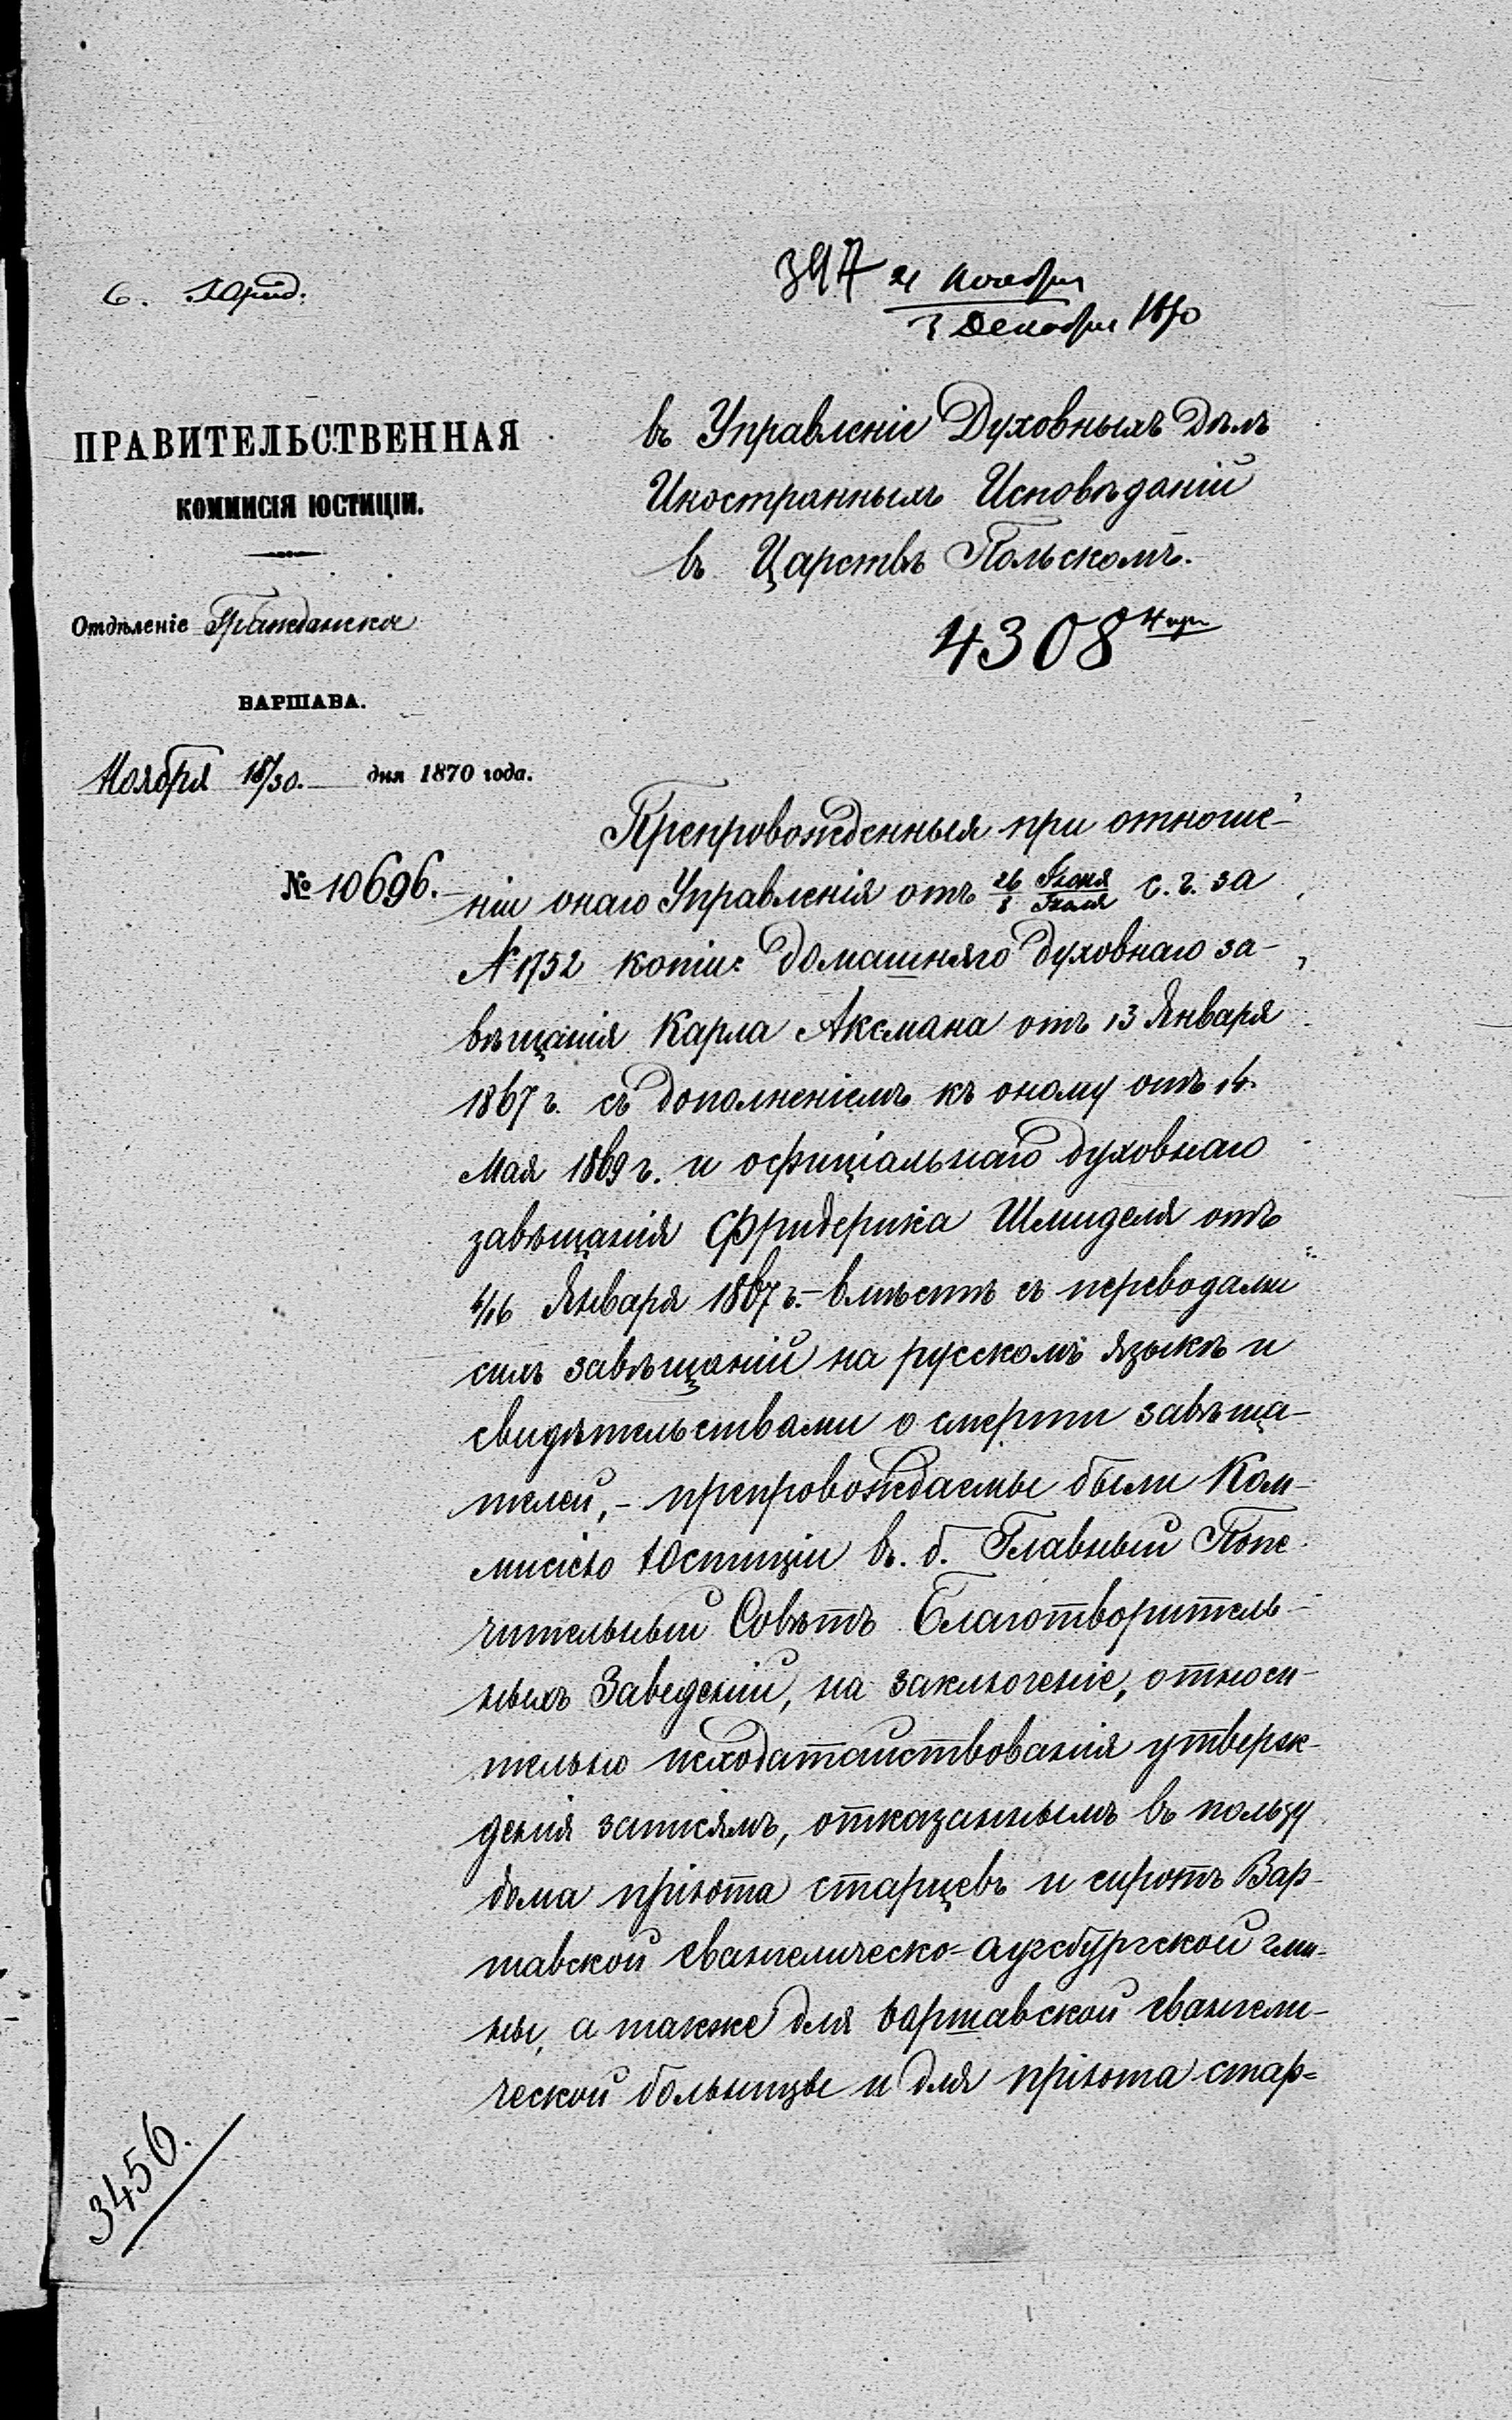 6. Юрид.
397 21 Ноября
3 Декабря 1870
ПРАВИТЕЛЬСТВЕННАЯ
КОММИСІЯ ЮСТИЦІИ.
Отдѣленіе Гражданское
ВАРШАВА.
Ноября 18/30. дня 1870 года.
№ 10696.
въ Управленіе Духовныхъ Дѣлъ
Иностранныхъ Исповѣданій
въ Царствѣ Польскомъ.
4308
Препровожденныя при отноше-
ніи онаго Управленія отъ 26 Іюня / 8 Іюля с. г. за
№ 1752 копіи: домашняго духовнаго за-
вѣщанія Карла Аксмана отъ 13 Января
1867 г. съ дополненіемъ къ оному отъ 14
Мая 1869 г. и офиціальнаго духовнаго
завѣщанія Фридерика Шмиделя отъ
4/16 Января 1867 г.- вмѣстѣ съ переводами
сихъ завѣщаній на русскомъ языкѣ и
свидѣтельствами о смерти завѣща-
телей,- препровождаемы были Ком-
мисіею Юстиціи въ б. Главный Попе-
чительный Совѣтъ Благотворитель-
ныхъ Заведеній, на заключеніе, относи-
тельно исходатайствованія утверж-
денія записямъ, отказаннымъ въ пользу
дома пріюта старцевъ и сиротъ Вар-
шавской евангелическо-аугсбургской гми-
ны, а также для варшавской евангели-
ческой больницы и для пріюта стар-
3456.